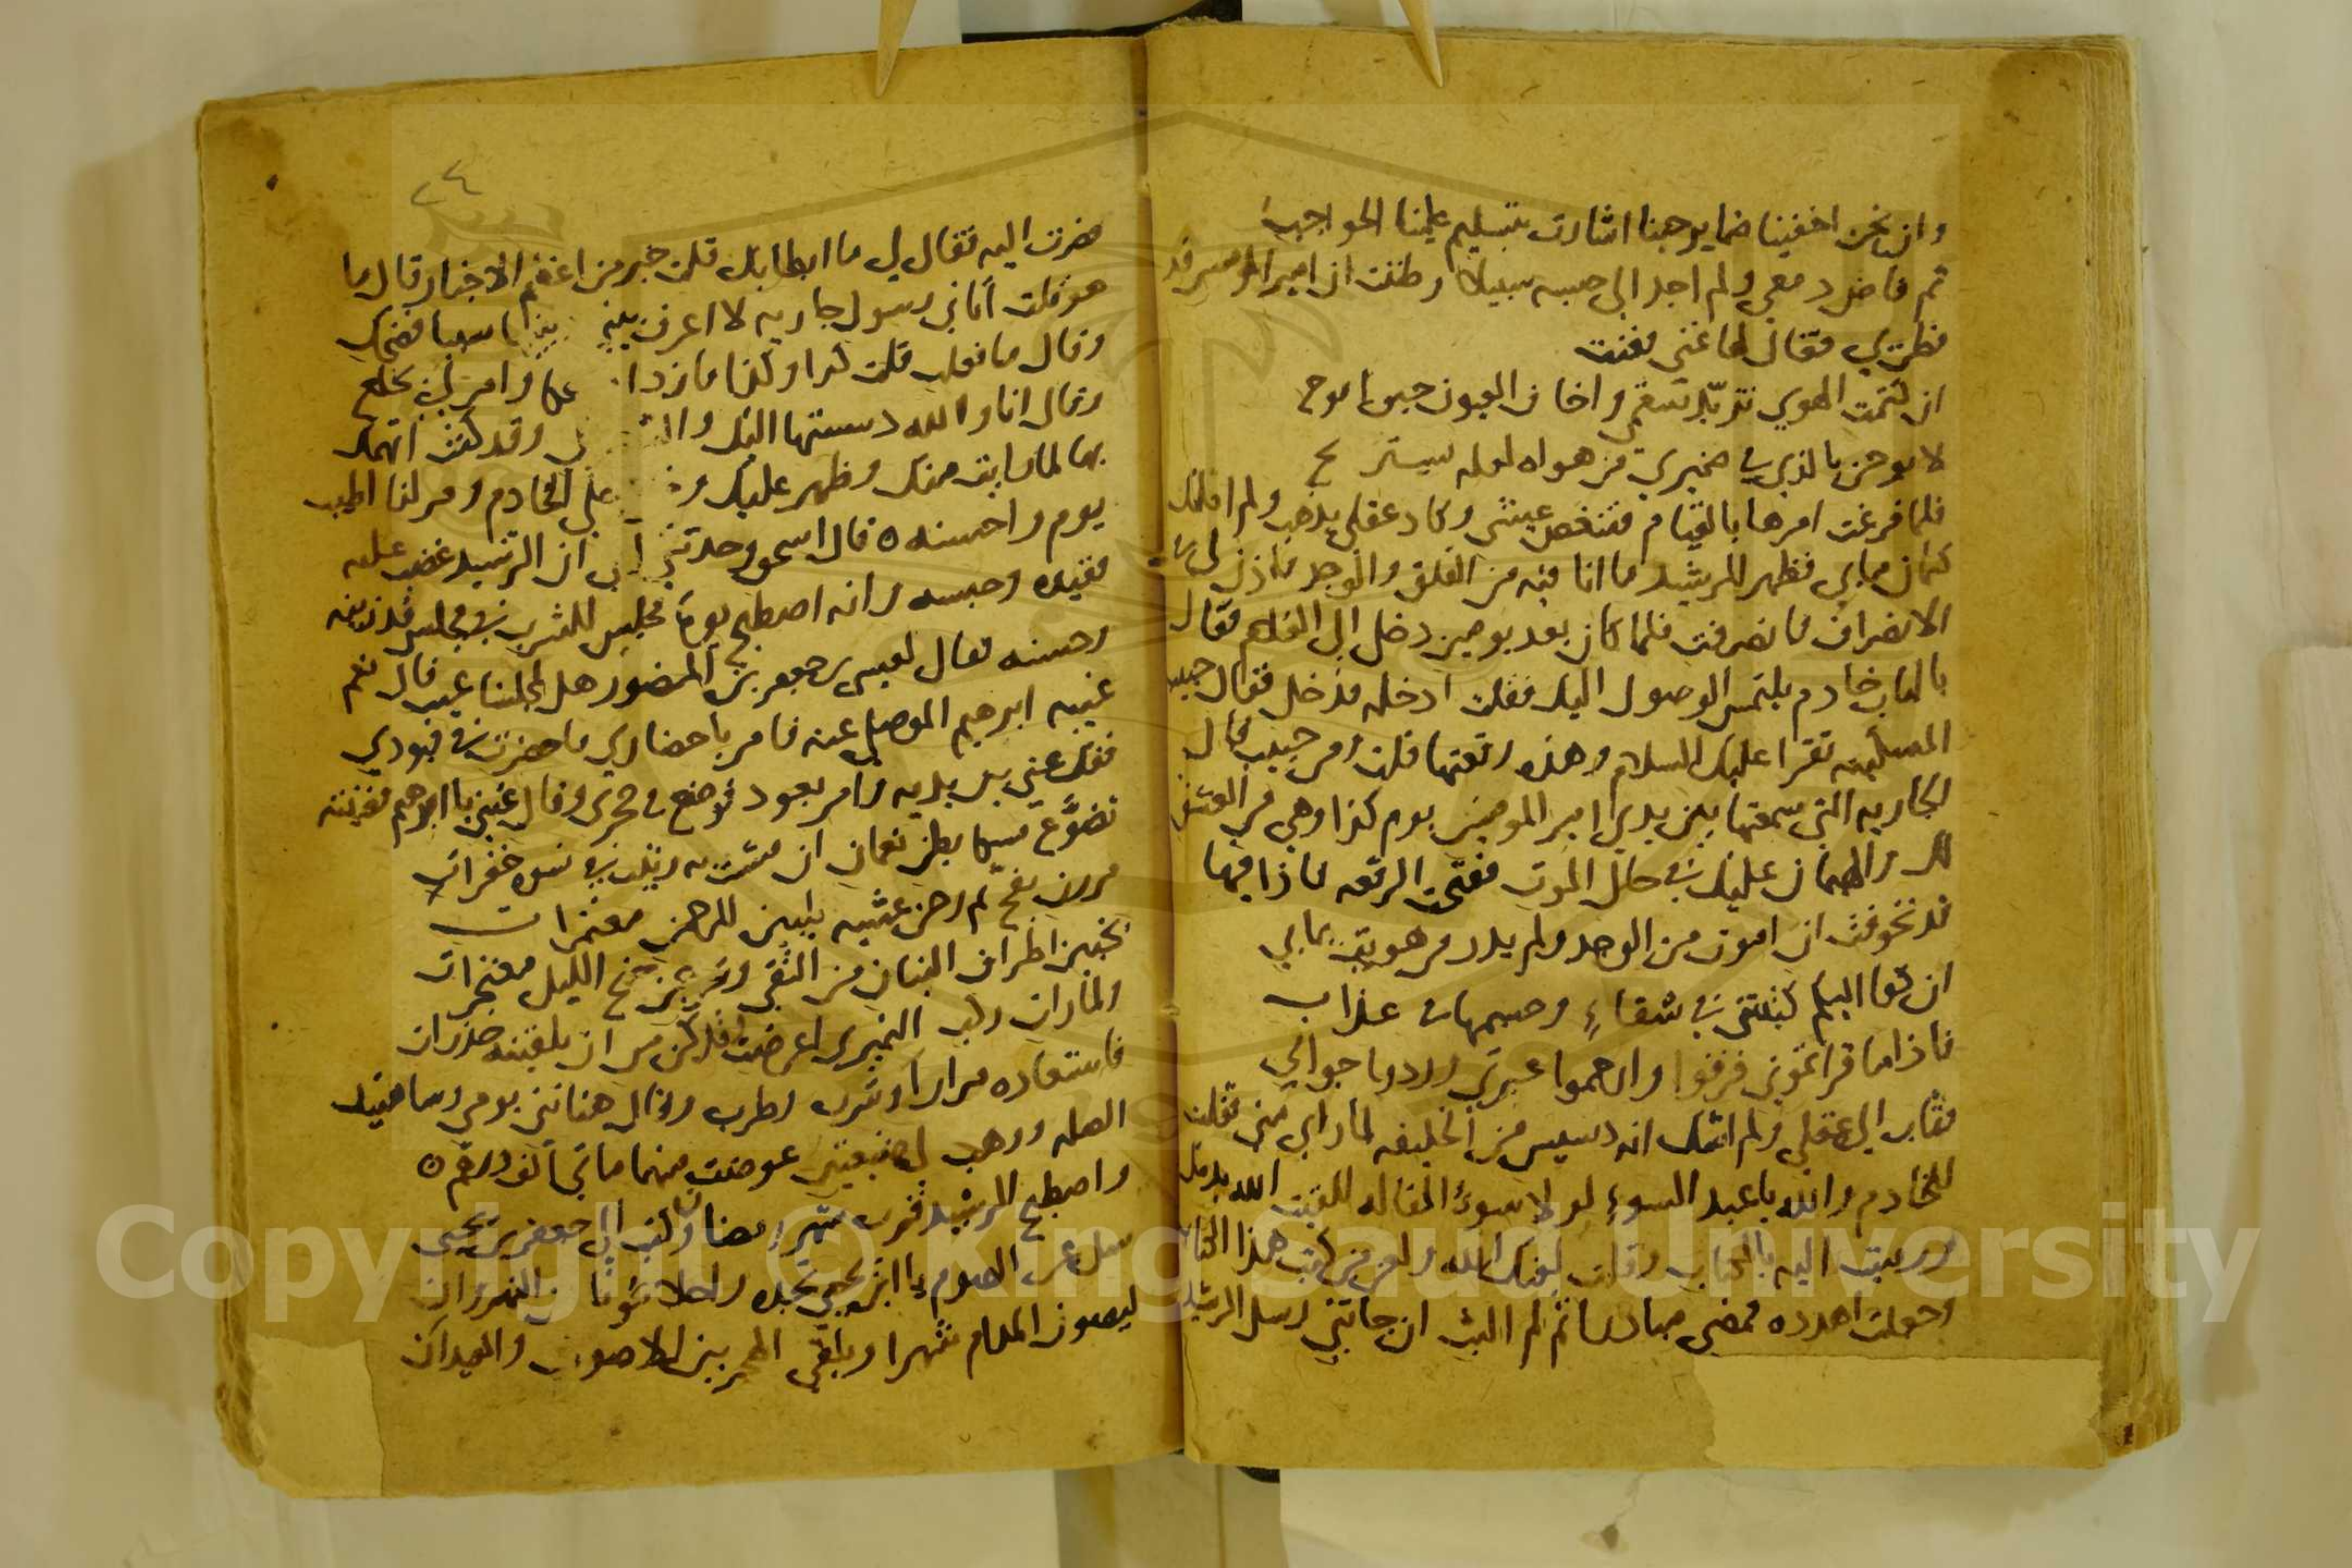 وان نحن اخفينا ضمايرجهنا اشارت بتسليم علينا الحواجب
ثم فاض دمعي ولم اجد الى حبسه سبيلا وظننت ان امير المومنين قد
فطن بي فقال لها غني فغنت
ان كتمت الهوي تزيد سقمي واخاف العيون حين ابوح
لابوحن بالذي في ضميري من هواه لعله يستريح
فلما فرغت امرها بالقيام فتنغص عيشي وكاد عقلي يذهب ولم املك
كتمان مابي فظهر للرشيد ما انا فيه من القلق والوجد فاذن لي في
الانصراف فانصرفت فلما كان بعد يومين دخل الي الغلام فقال
بالباب خادم يلتمس الوصول اليك فقلت ادخله فدخل فقال حبيب
المسلميه تقرا عليك السلام وهذه رقعتها قلت ومن حبيب قال
الجاريه التي سمعتها بين يدي امير المومنين يوم كذا وهي من العشق
لك والهيمان عليك في حال الموت ففتحت الرقعه فاذا فيها
قد تخوفت ان اموت من الوجد ولم يدر من هويت بما بي
ان كفا اليكم كتبتني في شقاء وجسمها في عذاب
فاذا ما قراتموني فرقوا وارحموا عبرتي وردوا جوابي
فثاب الي عقلي ولم اشك انه دسيس من الخليفه لما راي مني فقلت
للخادم والله يا عبد السوء لولا سوء المقاله للقيت الله بدمك
ورميت اليه بالكتاب وقلت لعنك الله ولعن من كتب هذا الكتاب
وجعلت اهدده فمضى مبادرا ثم لم البث ان جاتني رسل الرشيد
٢٤
فصرت اليه فقال لي ما ابطا بك قلت خبر من اعظم الاخبار قال ما
هو قلت اتاني رسول جاريه لا اعرف فضحك
وقال ما فعلت قلت كذا وكذا وامر لي بخلع
وقال انا والله دسستها اليك وقد كنت اتهمك
بها لما رايت منك وظهر عليك علي الخادم ومر لنا اطيب
يوم واحسنه ٥ قال اسحق وحدثني ابي ان الرشيد غضب عليه
فقيده وحبسه وانه اصطبح يوما فجلس للشرب في مجلس قد زينه
وحسنه فقال لعيسى بن جعفر بن المنصور هل لمجلسنا عيب قال نعم
غيبه ابرهيم الموصلي عنه فامر باحضاري فاحضرت في قيودي
ففك عني بين يديه وامر بعود فوضع في حجري وقال غنني يا ابرهيم فغنيته
تضوع مسكا بطن نعمان ان مشت به زينب في نسوه خفرات
مررن بفخ ثم رحن عشيه يلبين للرحمن معتمرات
يخبين اطراف البنان من التقى ويخرجن جنح الليل معتجرات
ولما رات ركب النميري اعرضت وكن من ان يلقينه حذرات
فاستعاده مرارا وشرب وطرب وقال هناتني يومي وساهنيك
الصله ووهب لي ضيعتين عوضت منهما ماتي الف درهم ٥
واصطبح الرشيد قرب شهر رمضان وكتب الي جعفر بن يحيى
سل عن الصوم يا ابن يحيى تجده راحلا نحونا من النهروان
ليصون المدام شهرا ويلقى الهجر بين الاصوات والعيدان
Copyright © King Saud University